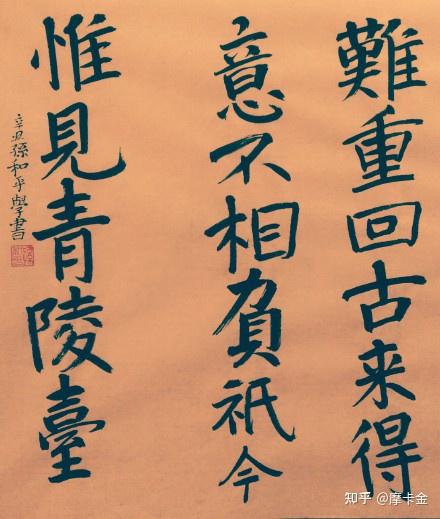 難重回古来得
意不相負祇今
惟見青陵臺
辛丑孫和平學書
知乎 @摩卡金